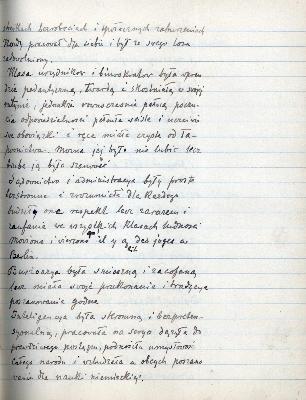 skutkach bezrobociach i społecznych zaburzeniach
Każdy pracował dla siebie i był ze swego losu
zadowolony.
Klasa urzędników i biurokratów była wpraw
dzie pedantyczną, twardą w swojej
rutynie, jednakże równocześnie pełną poczu-
cia odpowiedzialności pełniła ściśle i uczciwie
swe obowiązki i ręce miała czyste od ła-
pownictwa. Można jej było nie lubić lecz
trzeba ją było szanować
Sądownictwo i administracya były proste
bezstronne i zrozumiałe dla każdego
budziły one respekt lecz zarazem i
zaufanie we wszystkich klasach ludności
Mówiono i wierzono il y a des juges à
Berlin.
Burżoazya była śmieszną i zacofaną
lecz miała swoje przekonania i tradycye
poszanowania godne
Inteligencya była skromną i bezpreten-
syonalną, pracowała na seryo dążyła do
prawdziwego postępu, podnosiła umysłowość
całego narodu i wzbudzała u obcych poszano
wanie dla nauki niemieckiej.